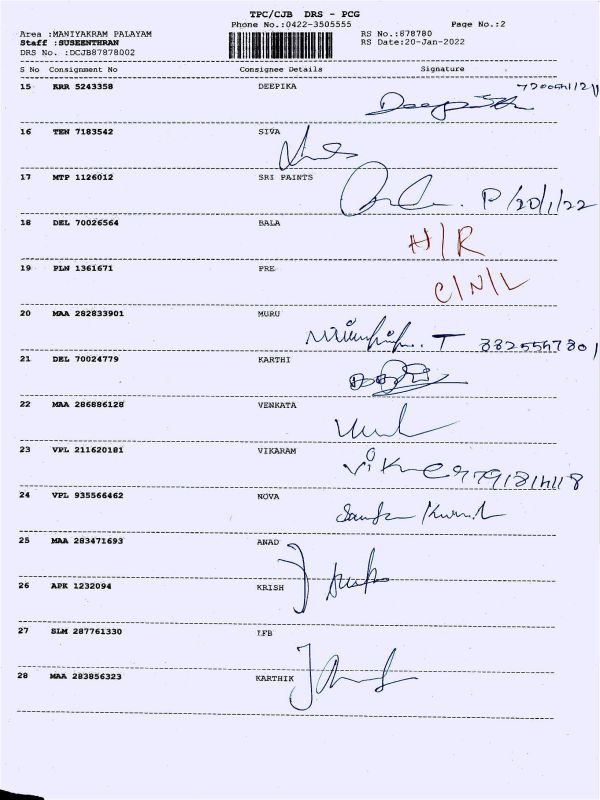 TPC/CJB DRS - PCG
Phone No.:0422-3505555 Page No.:2
Area :MANIYAKRAM PALAYAM RS No.:878780
Staff :SUSEENTHRAN RS Date:20-Jan-2022
DRS No. :DCJB87878002
S No Consignment No Consignee Details Signature
15 KRR 5243358 DEEPIKA
16 TEN 7183542 SIVA
17 MTP 1126012 SRI PAINTS P/20/1/22
18 DEL 70026564 BALA H/R
19 PLN 1361671 PRE C/N/L
20 MAA 282833901 MURU
21 DEL 70024779 KARTHI
22 MAA 286886128 VENKATA
23 VPL 211620181 VIKARAM
24 VPL 935566462 NOVA
25 MAA 283471693 ANAD
26 APK 1232094 KRISH
27 SLM 287761330 LFB
28 MAA 283856323 KARTHIK